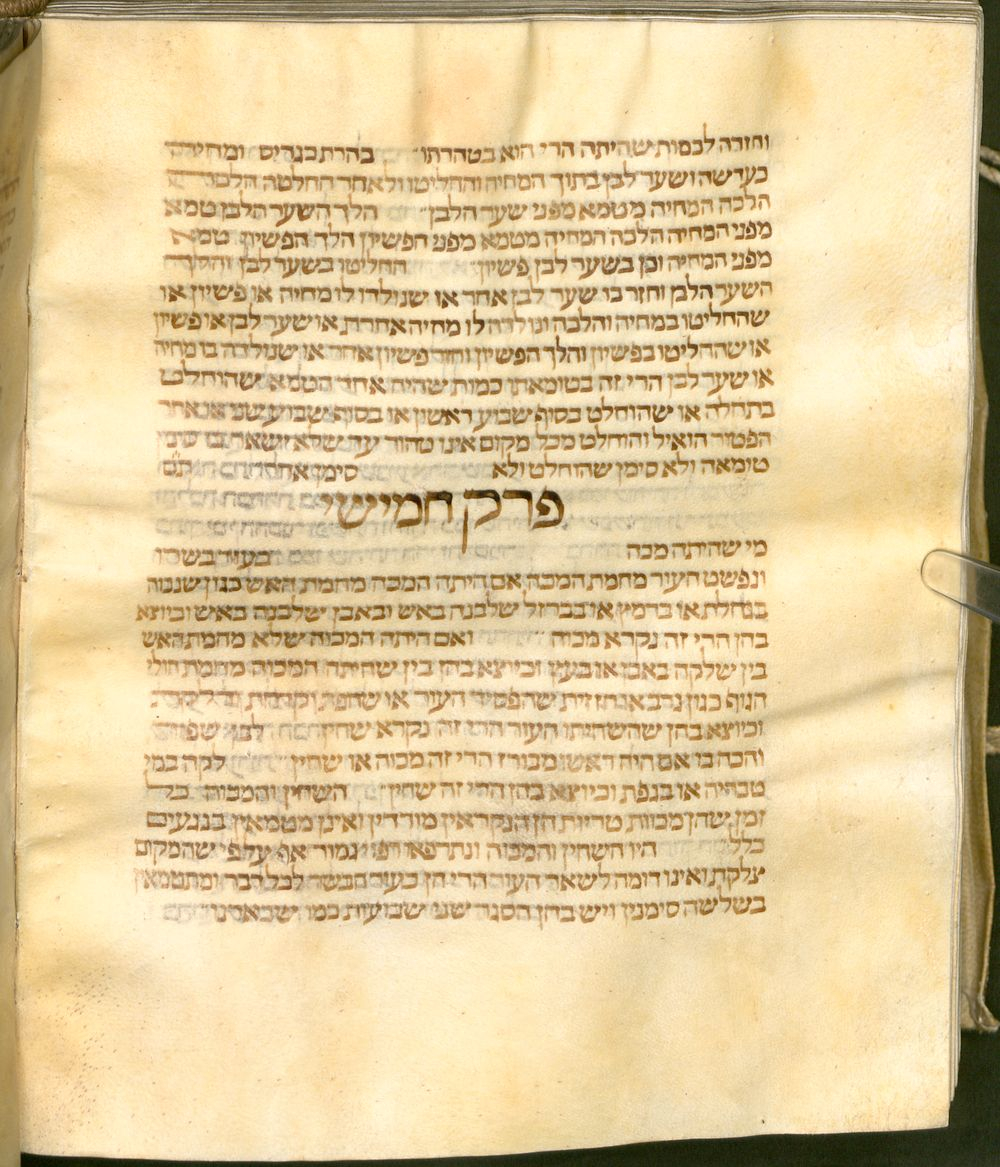 וחזרה לכמות שהיתה הרי הוא בטהרתו בהרת כגריס ומחיה בה
כעדשה ושער לבן בתוך המחיה והחליטו ולאחר החלטה הלכה
הלכה המחיה מטמא מפני שער הלבן הלך השער הלבן טמא
מפני המחיה הלכה המחיה מטמא מפני הפשיון הלך הפשיון טמא
מפני המחיה וכן בשער לבן פשיון החליטו בשער לבן והלך
השער הלבן וחזר בו שער לבן אחר או שנולדו לו מחיה או פשיון או
שהחליטו במחיה והלכה ונולדה לו מחיה אחרת או שער לבן או פשיון
או שהחליטו בפשיון והלך הפשיון וחזר פשיון אחר או שנולדה בו מחיה
או שער לבן הרי זה בטומאתו כמות שהיה אחד הטמא שהוחלט
בתחלה או שהוחלט בסוף שבוע ראשון או בסוף שבוע שני או לאחר
הפטור הואיל והוחלט מכל מקום אינו טהור עד שלא ישאר בו סימן
טומאה ולא סימן שהוחלט ולא סימן אחר
פרק חמישי
מי שהיתה מכה בעור בשרו
ונפשט העור מחמת המכה אם היתה המכה מחמת האש כגון שנכוה
בגחלת או ברמץ או בברזל שלבנה באש ובאבן שלבנה באיש וכיוצא
בהן הרי זה נקרא מכוה ואם היתה המכוה שלא מחמת האש
בין שלקה באבן או בעץ וכיוצא בהן בין שהיתה המכוה מחמת חולי
הגוף כגון גרב או חזזית שהפסיד העור או שחפת וקדחת ודלקת
וכיוצא בהן שהשחיתו העור הרי זה נקרא שחין לפני שפוד
והכה בו אם היה ראשו מכורז הרי זה מכוה או שחין לקה במי
טבריה או בגפת וכיוצא בהן הרי זה שחין השחין והמכוה כל
זמן שהן מכות טריות הן הנקראין מורדין ואינן מטמאין בנגעים
כלל היו השחין והמכוה ונתרפאו רפוי גמור אף על פי שהמקום
צלקת ואינו דומה לשאר העור הרי הן כעור הבשר לכל דבר ומתטמאין
בשלשה סימנין ויש בהן הסגר שני שבועות כמו שבארנו